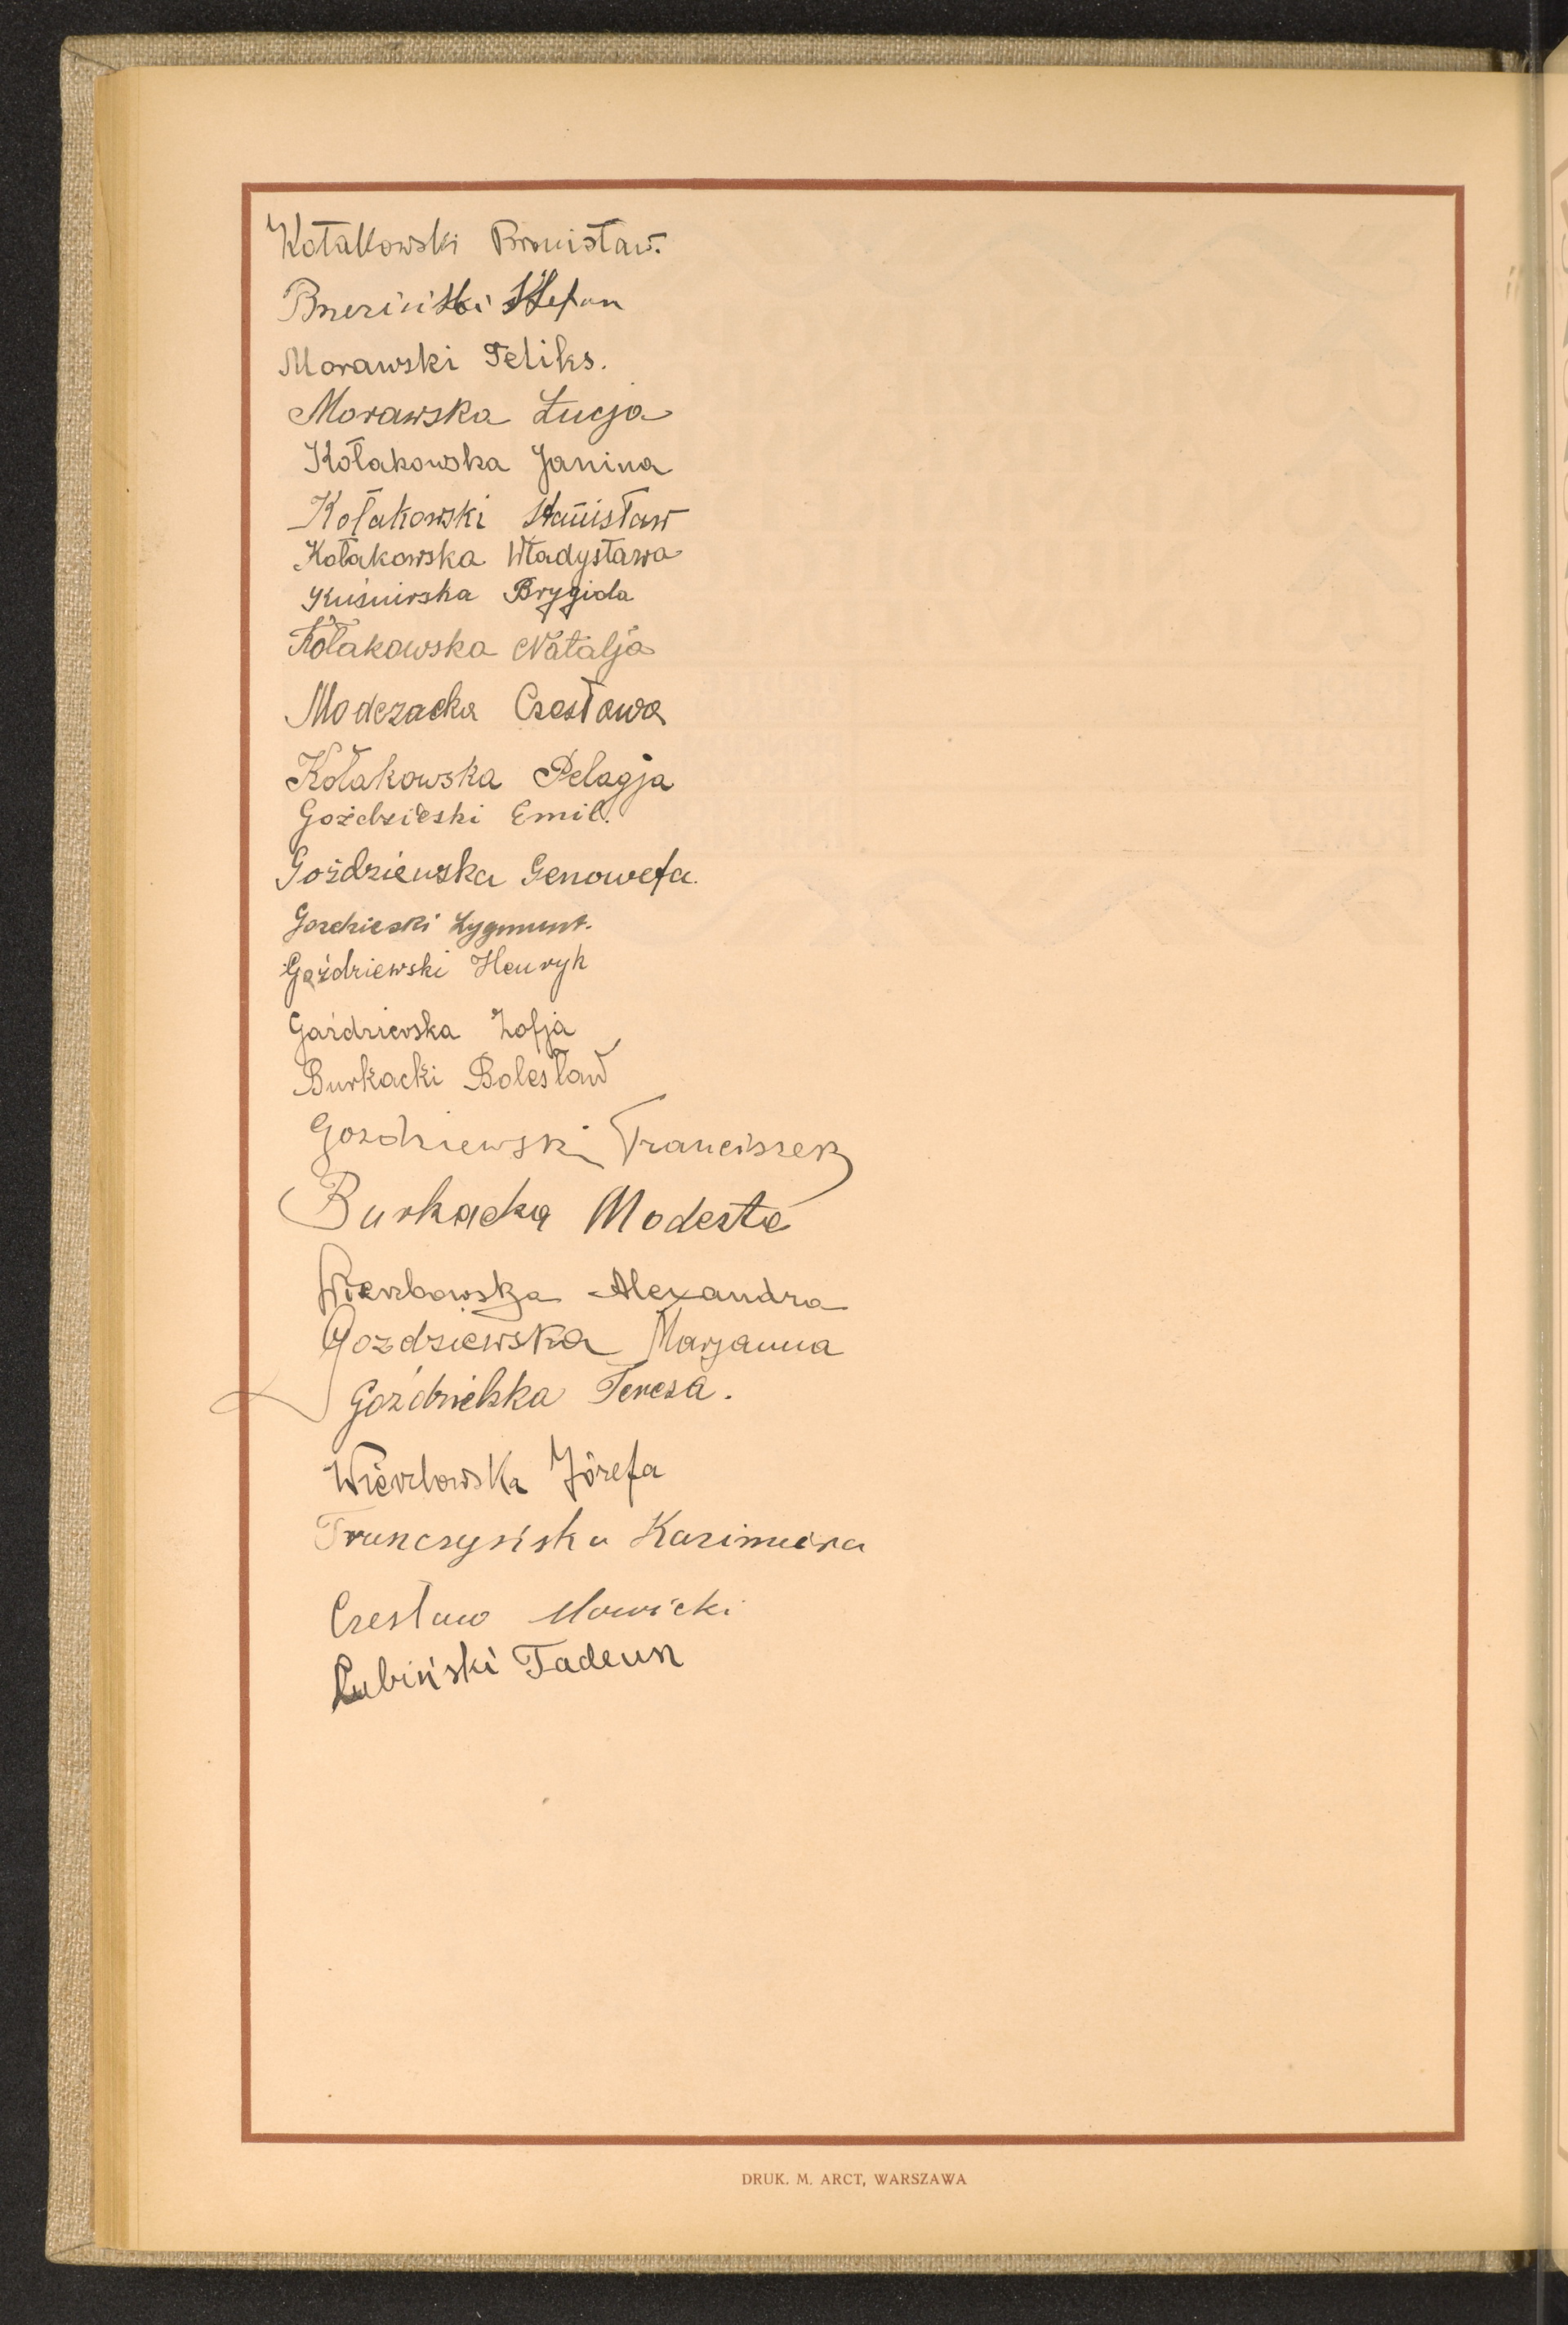 Kołakowski Bronisław.
Brzeziński Stefan
Morawski Feliks.
Morawska Łucja
Kołakowska Janina
Kołakowski Stanisław
Kołakowska Władysława
Kuśmirska Brygida
Kołakowska Natalja
Modczacka Czesława
Kołakowska Pelagja
Goździeski Emil.
Goździewska Genowefa.
Gozdzieski Zygmunt.
Goździewski Henryk
Gaździewska Zofja
Burkacki Bolesław
Gozdziewski Franciszek
Burkacka Modesta
Wierzbowska Alexandra
Gozdziewska Marjanna
Goździelska Teresa.
Wierzbowska Józefa
Franczyńska Kazimiera
Czesław Nowicki
Łubiński Tadeusz
DRUK. M. ARCT, WARSZAWA